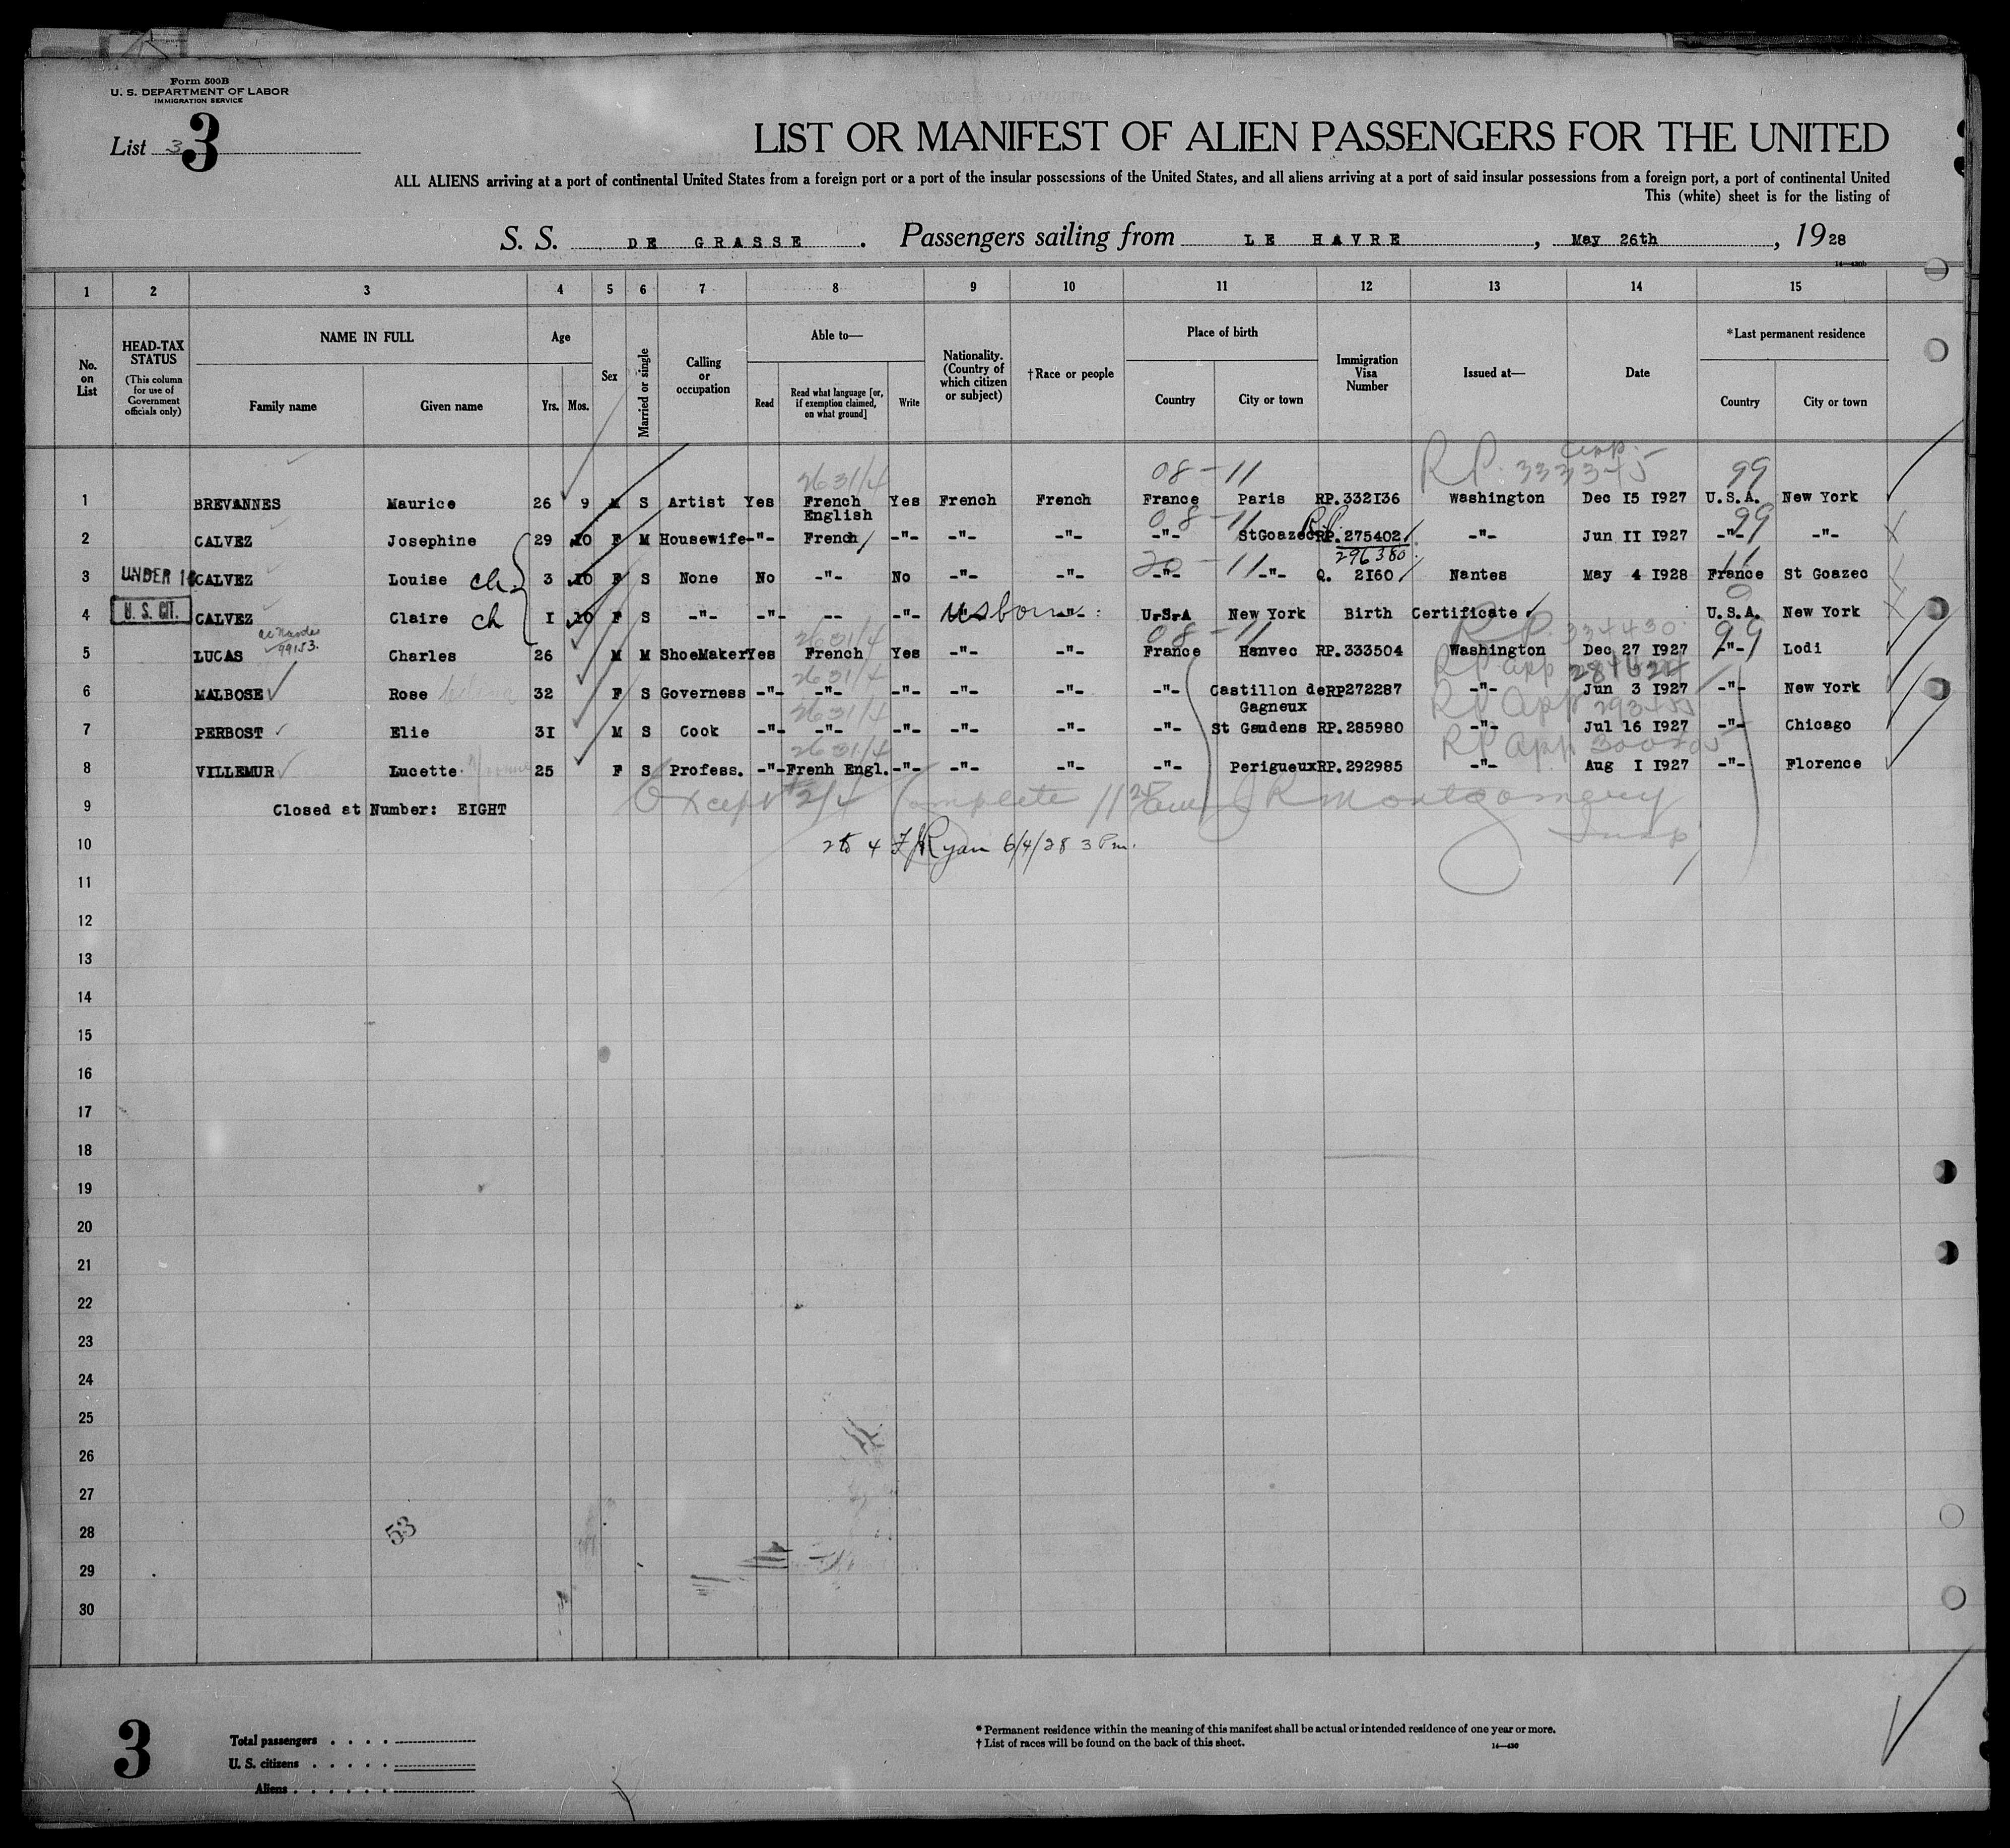 Form 500B
U. S. DEPARTMENT OF LABOR
IMMIGRATION SERVICE
List 3 3
LIST OR MANIFEST OF ALIEN PASSENGERS FOR THE UNITED
ALL ALIENS arriving at a port of continental United States from a foreign port or a port of the insular possessions of the United States, and all aliens arriving at a port of said insular possessions from a foreign port, a port of continental United
This (white) sheet is for the listing of
S. S. DE GRASSE . Passengers sailing from LE HAVRE , May 26th , 19 28
1 2 3 4 5 6 7 8 9 10 11 12 13 14 15
No. on List
HEAD-TAX STATUS (This column for use of Government officials only)
NAME IN FULL
Family name Given name
Age
Yrs. Mos.
Sex
Married or single
Calling or occupation
Able to—
Read Read what language [or, if exemption claimed, on what ground] Write
Nationality. (Country of which citizen or subject)
†Race or people
Place of birth
Country City or town
Immigration Visa Number
Issued at—
Date
*Last permanent residence
Country City or town
08-11 RP. 333345 99
2631/4
1 BREVANNES Maurice 26 9 M S Artist Yes French Yes French French France Paris RP.332136 Washington Dec 15 1927 U.S.A. New York
English
08-11 RP. 99
2 CALVEZ Josephine 29 10 F M Housewife -"- French -"- -"- -"- -"- StGoazec RP.275402 -"- Jun 11 1927 -"- -"-
296380
20-11 11
3 UNDER 16 CALVEZ Louise ch 3 10 F S None No -"- No -"- -"- -"- -"- Q. 2160 Nantes May 4 1928 France St Goazec
4 U. S. CIT. CALVEZ Claire ch 1 10 F S -"- -"- -- -"- US born -"- U.S.A New York Birth Certificate U.S.A. New York
99153. 2631/4 08-11 RP. 334430 99
5 LUCAS Charles 26 M M ShoeMaker Yes French Yes -"- -"- France Hanvec RP.333504 Washington Dec 27 1927 -"- Lodi
2631/4 RP app
6 MALBOSE Rose 32 F S Governess -"- -"- -"- -"- -"- -"- Castillon de RP272287 -"- Jun 3 1927 -"- New York
Gagneux
2631/4 RP App 293455
7 PERBOST Elie 31 M S Cook -"- -"- -"- -"- -"- -"- St Gaudens RP.285980 -"- Jul 16 1927 -"- Chicago
2631/4 RP App 300205
8 VILLEMUR Lucette 25 F S Profess. -"- Frenh Engl. -"- -"- -"- -"- Perigueux RP.292985 -"- Aug 1 1927 -"- Florence
Except 2/4 Complete 11 25 am J R Montgomery
9 Closed at Number: EIGHT
Insp
10 2 to 4 F J Ryan 6/4/28 3 Pm.
11
12
13
14
15
16
17
18
19
20
21
22
23
24
25
26
27
28 53
29
30
3
Total passengers
U. S. citizens
Aliens
* Permanent residence within the meaning of this manifest shall be actual or intended residence of one year or more.
† List of races will be found on the back of this sheet.
14—430